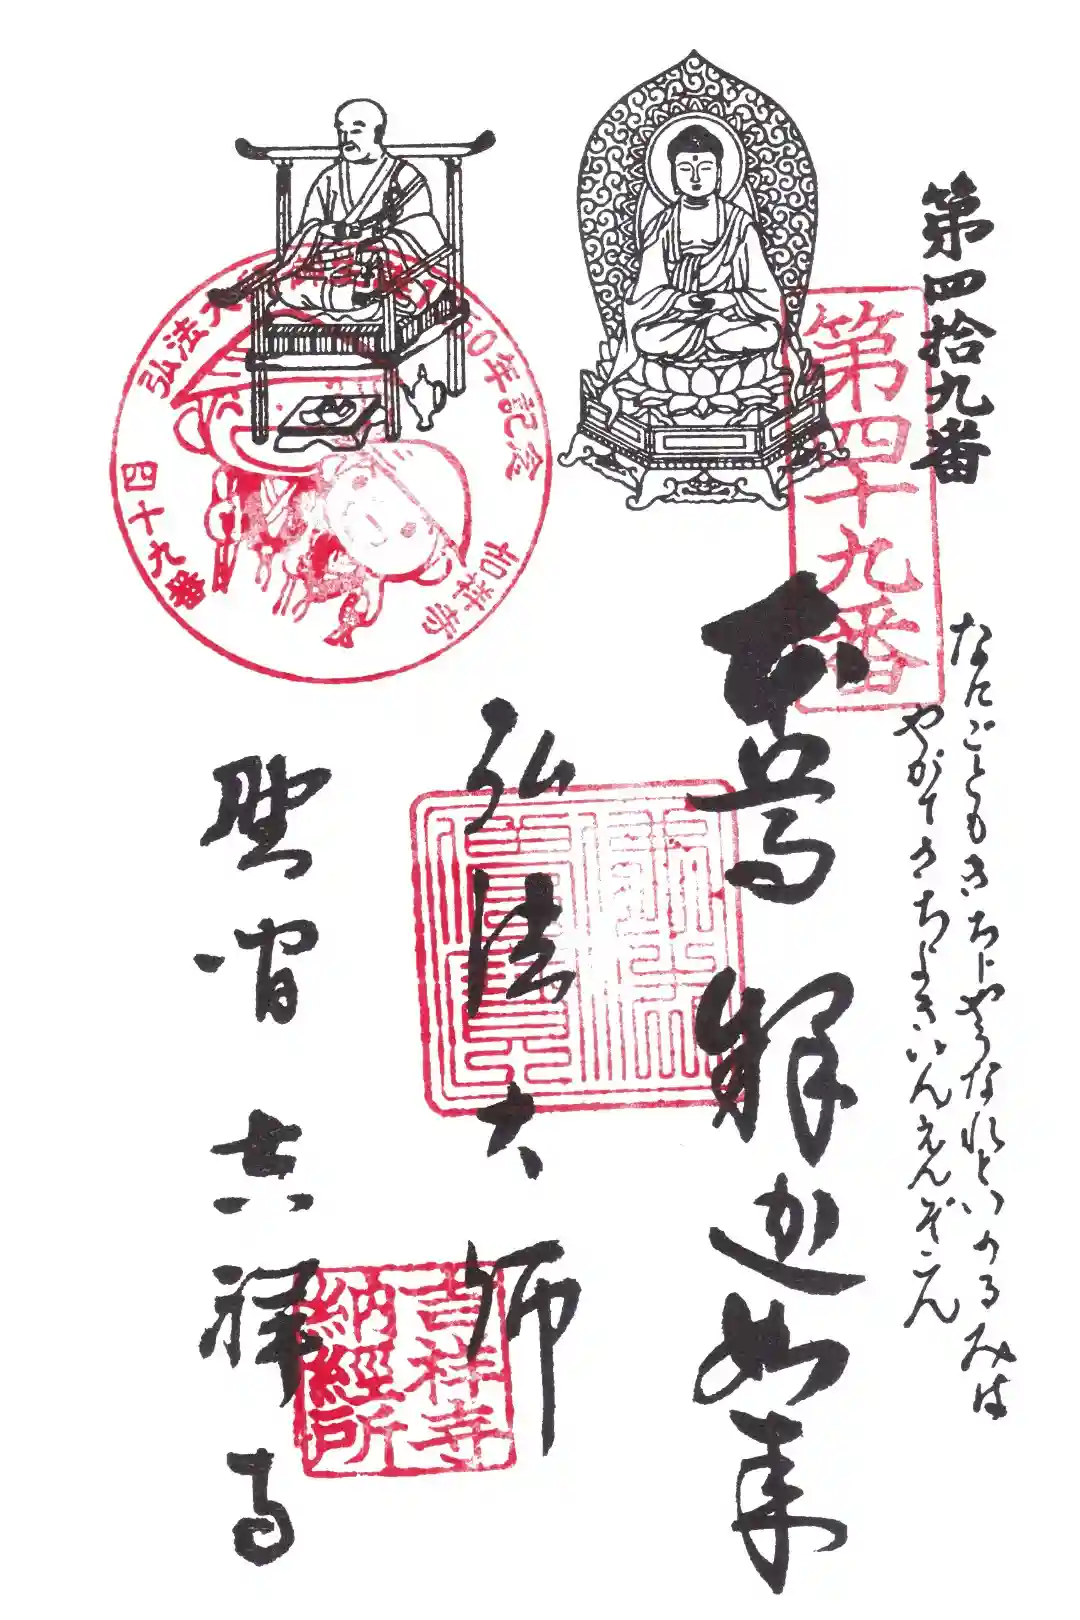 第四拾九番
第四十九番
なにごともきちしやうなれといのるみは
やがてきちよきいんえんぞこん
本尊 釋迦如来
弘法大師
野間 吉祥寺
弘法大師 50年記念
四十九番
吉祥寺
吉祥寺
納經所